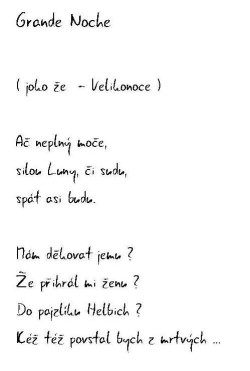 Grande Noche
( joko že - Velikonoce )
Ač neplný moče,
silou Luny, či sudu,
spát asi budu.
Mám děkovat jemu ?
Že přihrál mi ženu ?
Do pajzlíku Helbich ?
Kéž též povstal bych z mrtvých ...